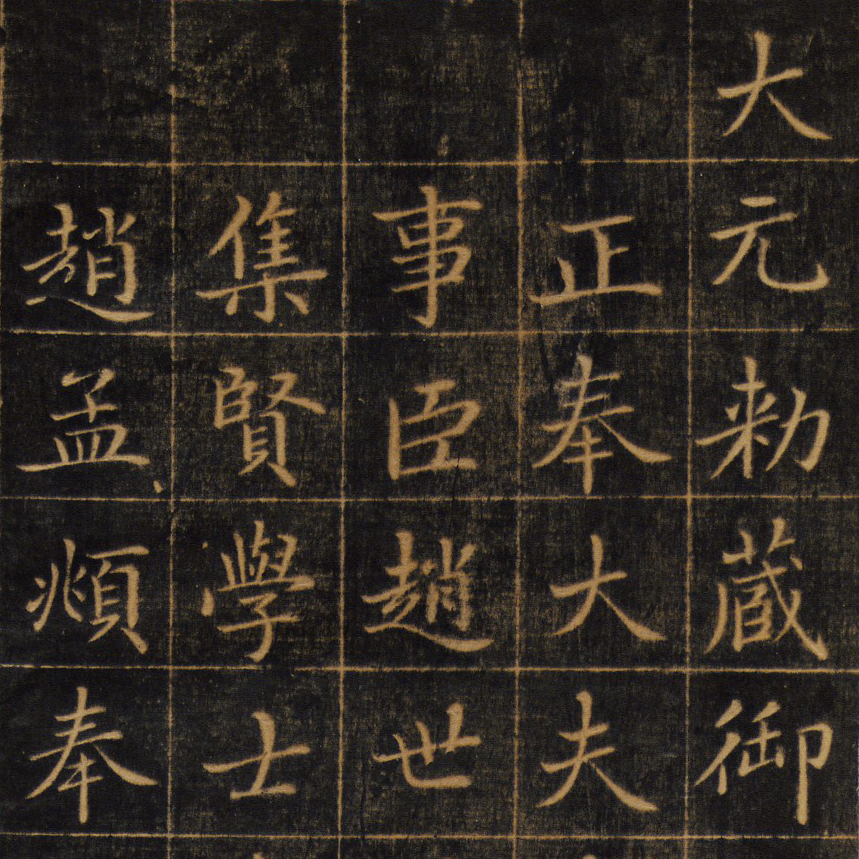 大元勑蔵御
正奉大夫
事臣趙世
集賢學士
趙孟頫奉